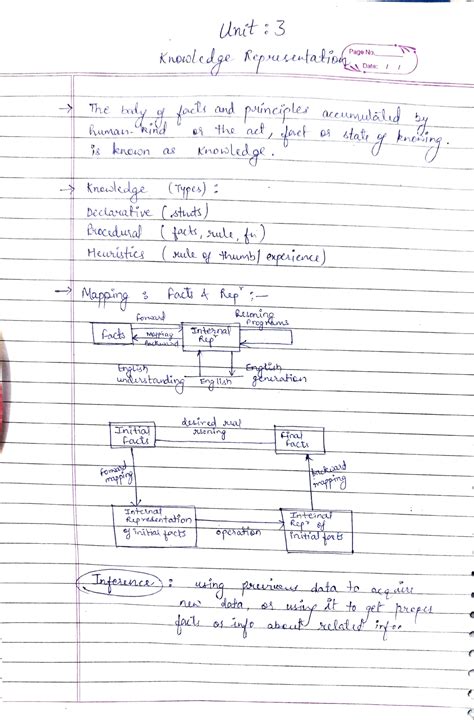 Unit : 3
Knowledge Representation
Page No.
Date: / /
→ The body of facts and principles accumulated by
human-kind or the act, fact or state of knowing.
is known as Knowledge.
→ Knowledge (Types) :
Declarative (stmts)
Procedural (facts, rule, fn)
Heuristics (rule of thumb/experience)
→ Mapping : Facts & Repⁿ :—
Forward
Resoning
Programs
Facts
Mapping
Backward
Internal
Repⁿ
English
understanding
English
English
generation
Initial
facts
desired real
resoning
Final
facts
Forward
mapping
Backward
mapping
Internal
Representation
of initial facts
operation
Internal
Repⁿ of
initial facts
Inference : using previous data to acquire
new data, or using it to get proper
facts or info about related info.